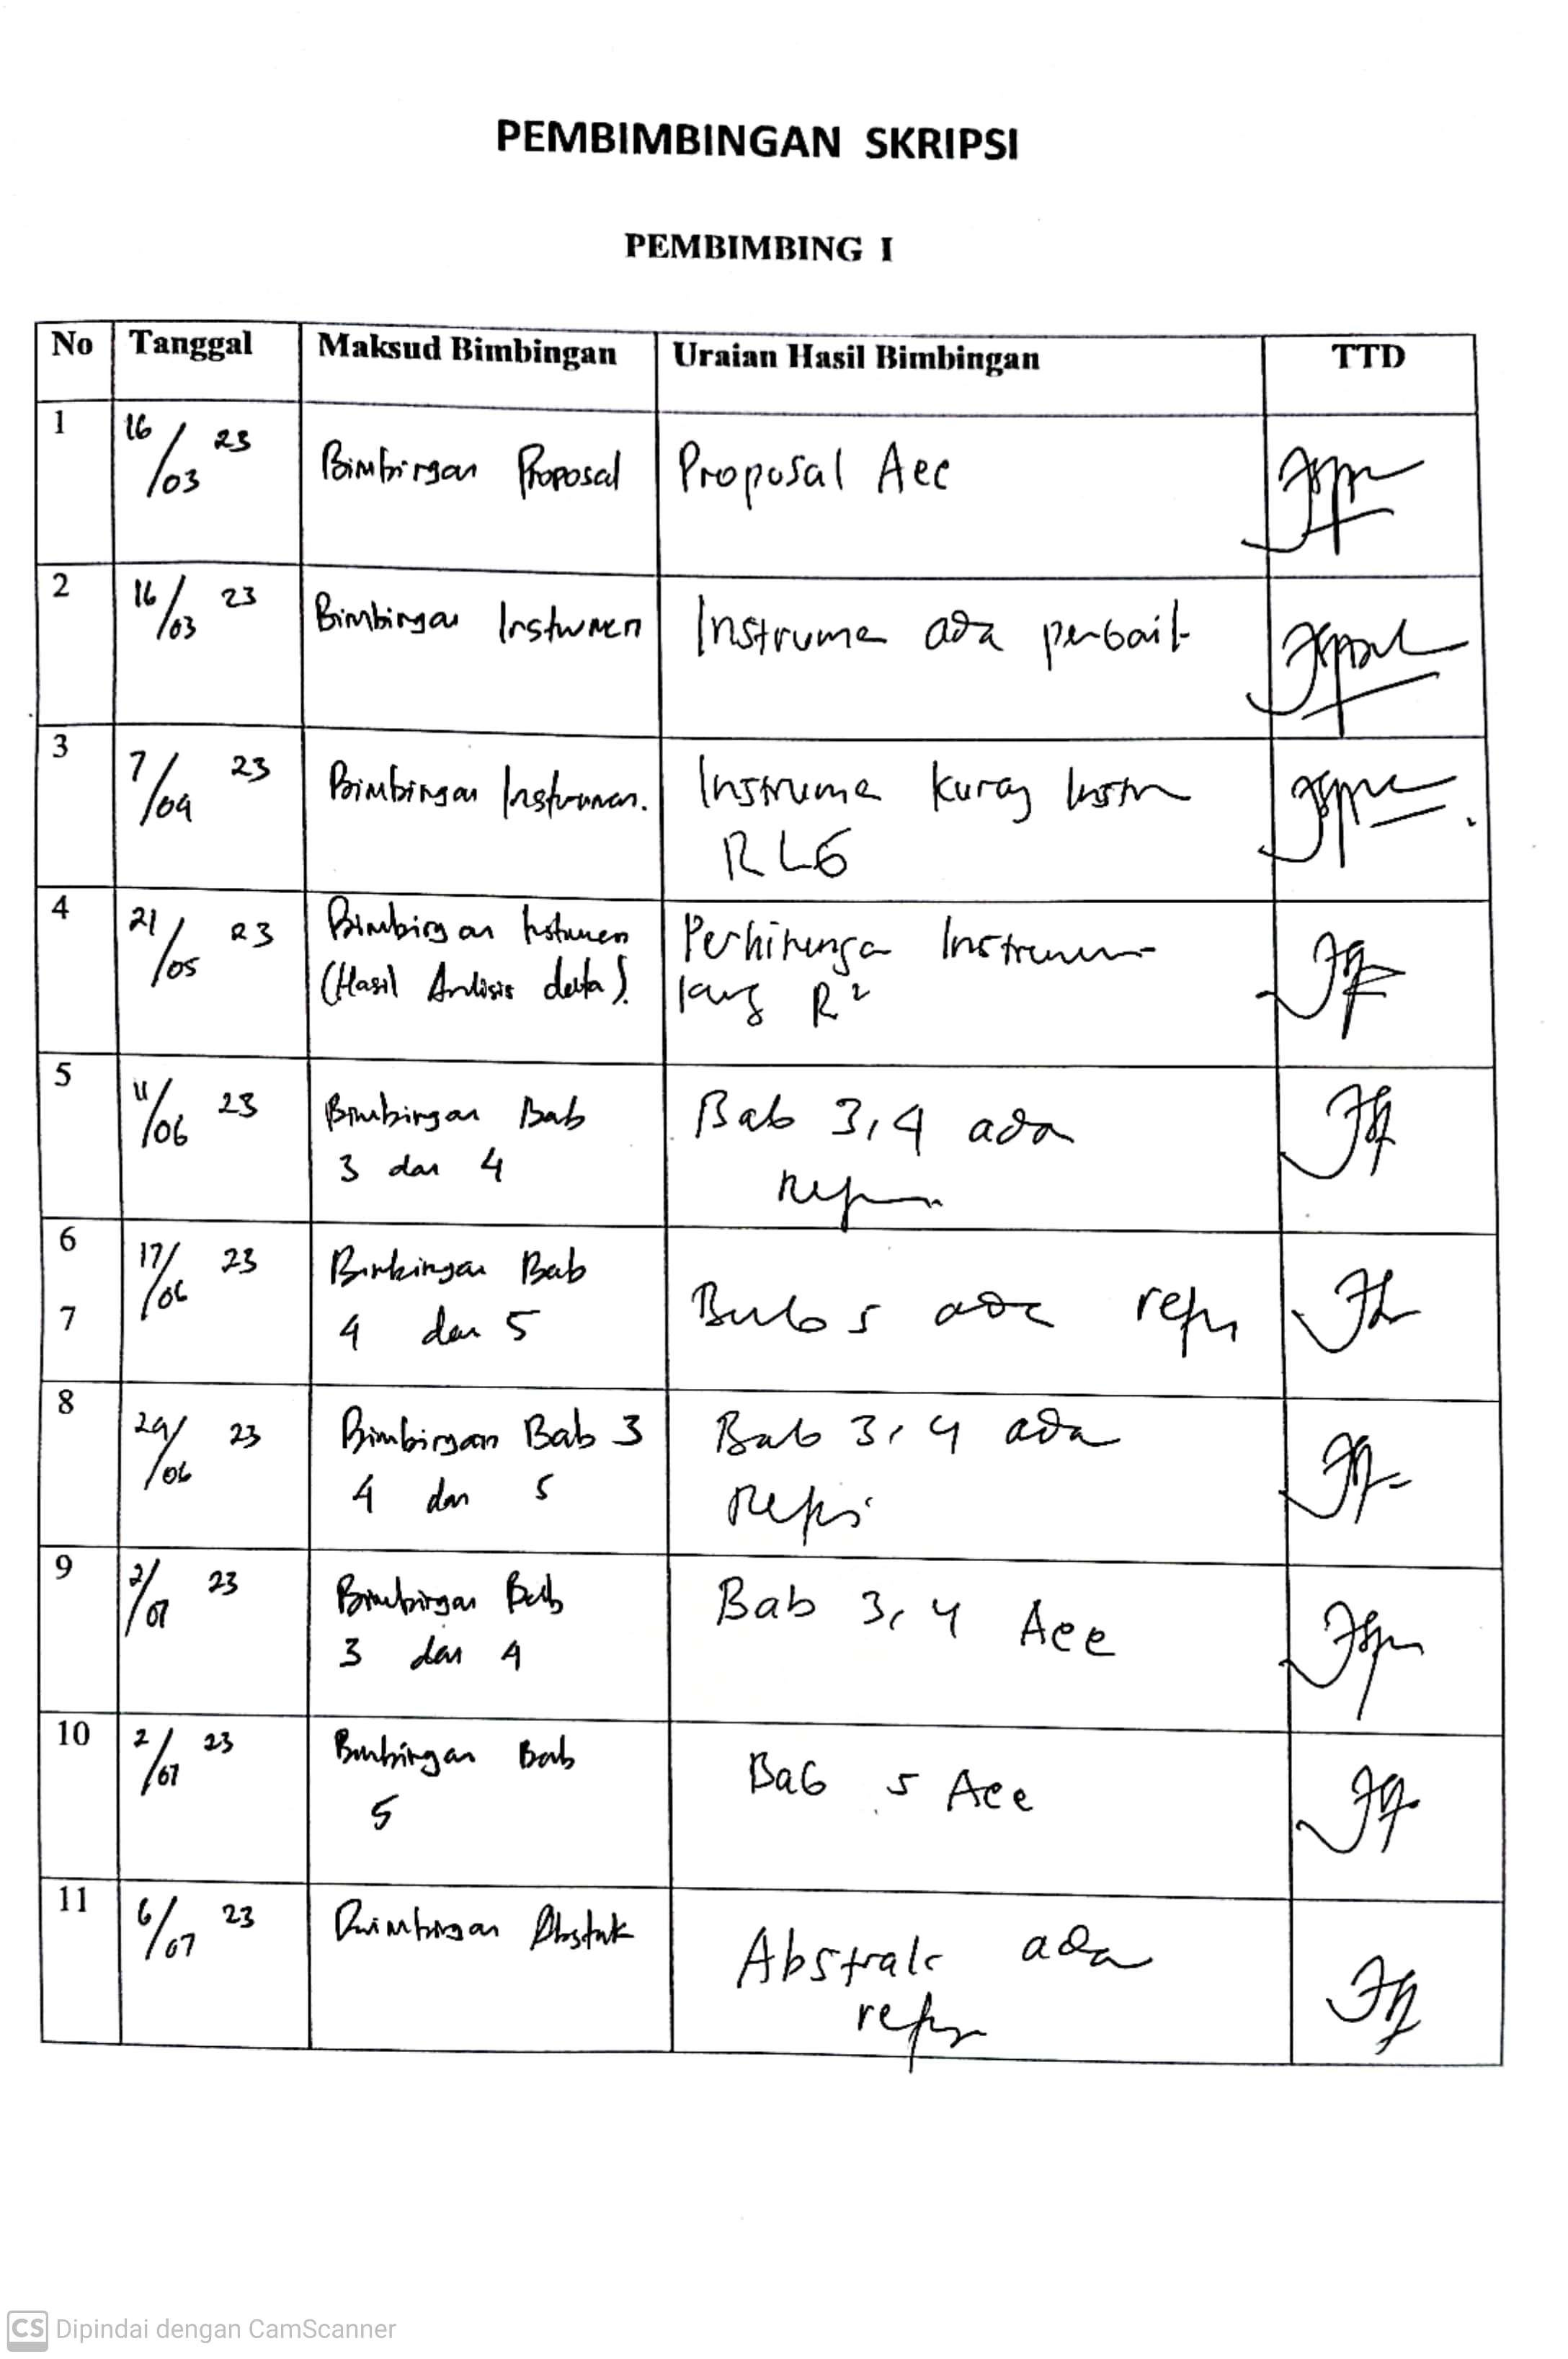 PEMBIMBINGAN SKRIPSI
PEMBIMBING I
No Tanggal Maksud Bimbingan Uraian Hasil Bimbingan TTD
1 16/03 23 Bimbingan Proposal Proposal Acc
2 16/03 23 Bimbingan Instrumen Instrume ada perbaik
3 7/04 23 Bimbingan Instrumen. Instrume kurang
4 21/05 23 Bimbingan Instrumen Perhitunga Instrumen
(Hasil Analisis data). R²
5 11/06 23 Bimbingan Bab Bab 3,4 ada
3 dan 4
6 17/06 23 Bimbingan Bab Bab 5 ada
7 4 dan 5
8 24/06 23 Bimbingan Bab 3 Bab 3,4 ada
4 dan 5
9 2/07 23 Bimbingan Bab Bab 3,4 Acc
3 dan 4
10 2/07 23 Bimbingan Bab Bab 5 Acc
5
11 6/07 23 Bimbingan Abstrak Abstrak ada
CS Dipindai dengan CamScanner